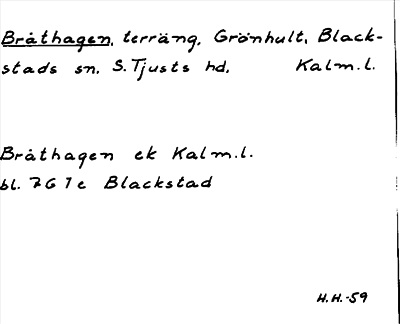 Bråthagen, terräng, Grönhult, Black-
stads sn, S. Tjusts hd, Kalm.l.
Bråthagen ek Kalm.l.
bl. 7G 7e Blackstad
H.H.-59